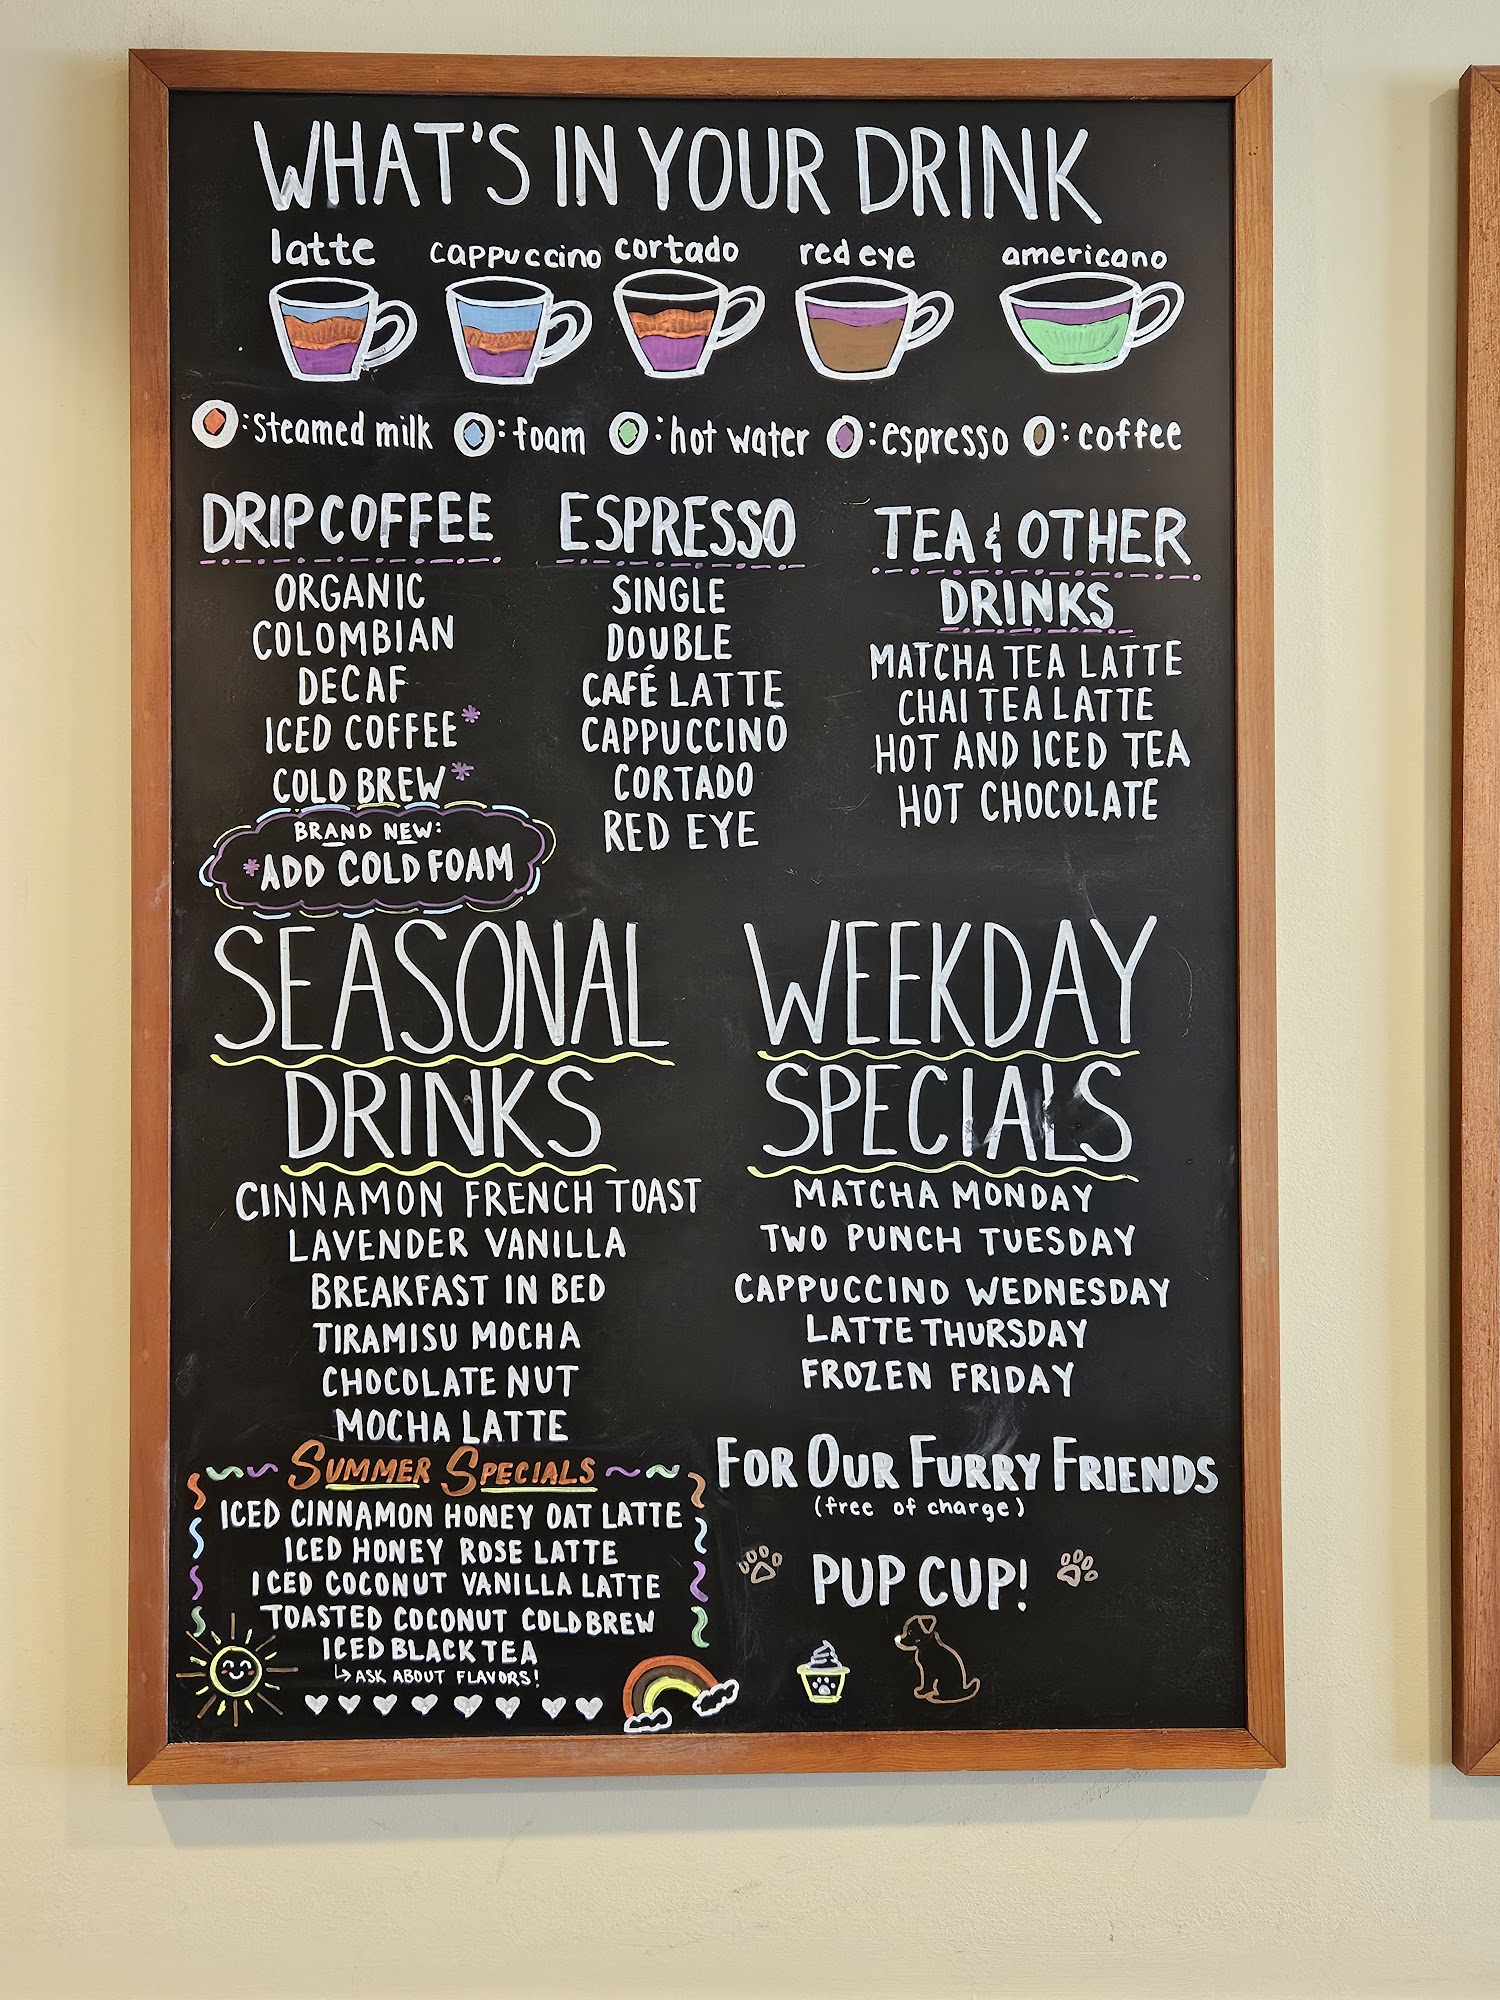 WHAT'S IN YOUR DRINK
latte cappuccino cortado red eye americano
:steamed milk :foam :hot water :espresso :coffee
DRIP COFFEE
ORGANIC
COLOMBIAN
DECAF
ICED COFFEE*
COLD BREW*
BRAND NEW:
*ADD COLD FOAM
ESPRESSO
SINGLE
DOUBLE
CAFÉ LATTE
CAPPUCCINO
CORTADO
RED EYE
TEA & OTHER
DRINKS
MATCHA TEA LATTE
CHAI TEA LATTE
HOT AND ICED TEA
HOT CHOCOLATE
SEASONAL
DRINKS
CINNAMON FRENCH TOAST
LAVENDER VANILLA
BREAKFAST IN BED
TIRAMISU MOCHA
CHOCOLATE NUT
MOCHA LATTE
SUMMER SPECIALS
ICED CINNAMON HONEY OAT LATTE
ICED HONEY ROSE LATTE
ICED COCONUT VANILLA LATTE
TOASTED COCONUT COLD BREW
ICED BLACK TEA
↳ ASK ABOUT FLAVORS!
WEEKDAY
SPECIALS
MATCHA MONDAY
TWO PUNCH TUESDAY
CAPPUCCINO WEDNESDAY
LATTE THURSDAY
FROZEN FRIDAY
FOR OUR FURRY FRIENDS
(free of charge)
PUP CUP!